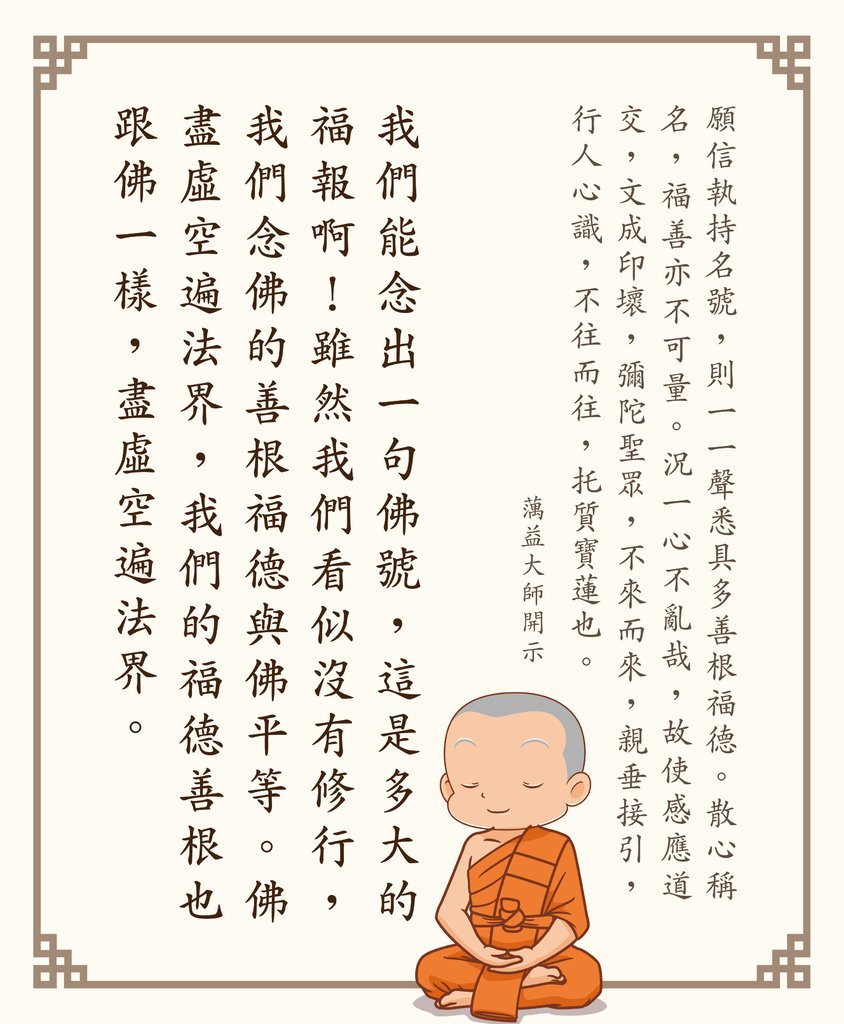 願信執持名號，則一一聲悉具多善根福德。散心稱
名，福善亦不可量。況一心不亂哉，故使感應道
交，文成印壞，彌陀聖眾，不來而來，親垂接引，
行人心識，不往而往，托質寶蓮也。
蕅益大師開示
我們能念出一句佛號，這是多大的
福報啊！雖然我們看似沒有修行，
我們念佛的善根福德與佛平等。佛
盡虛空遍法界，我們的福德善根也
跟佛一樣，盡虛空遍法界。